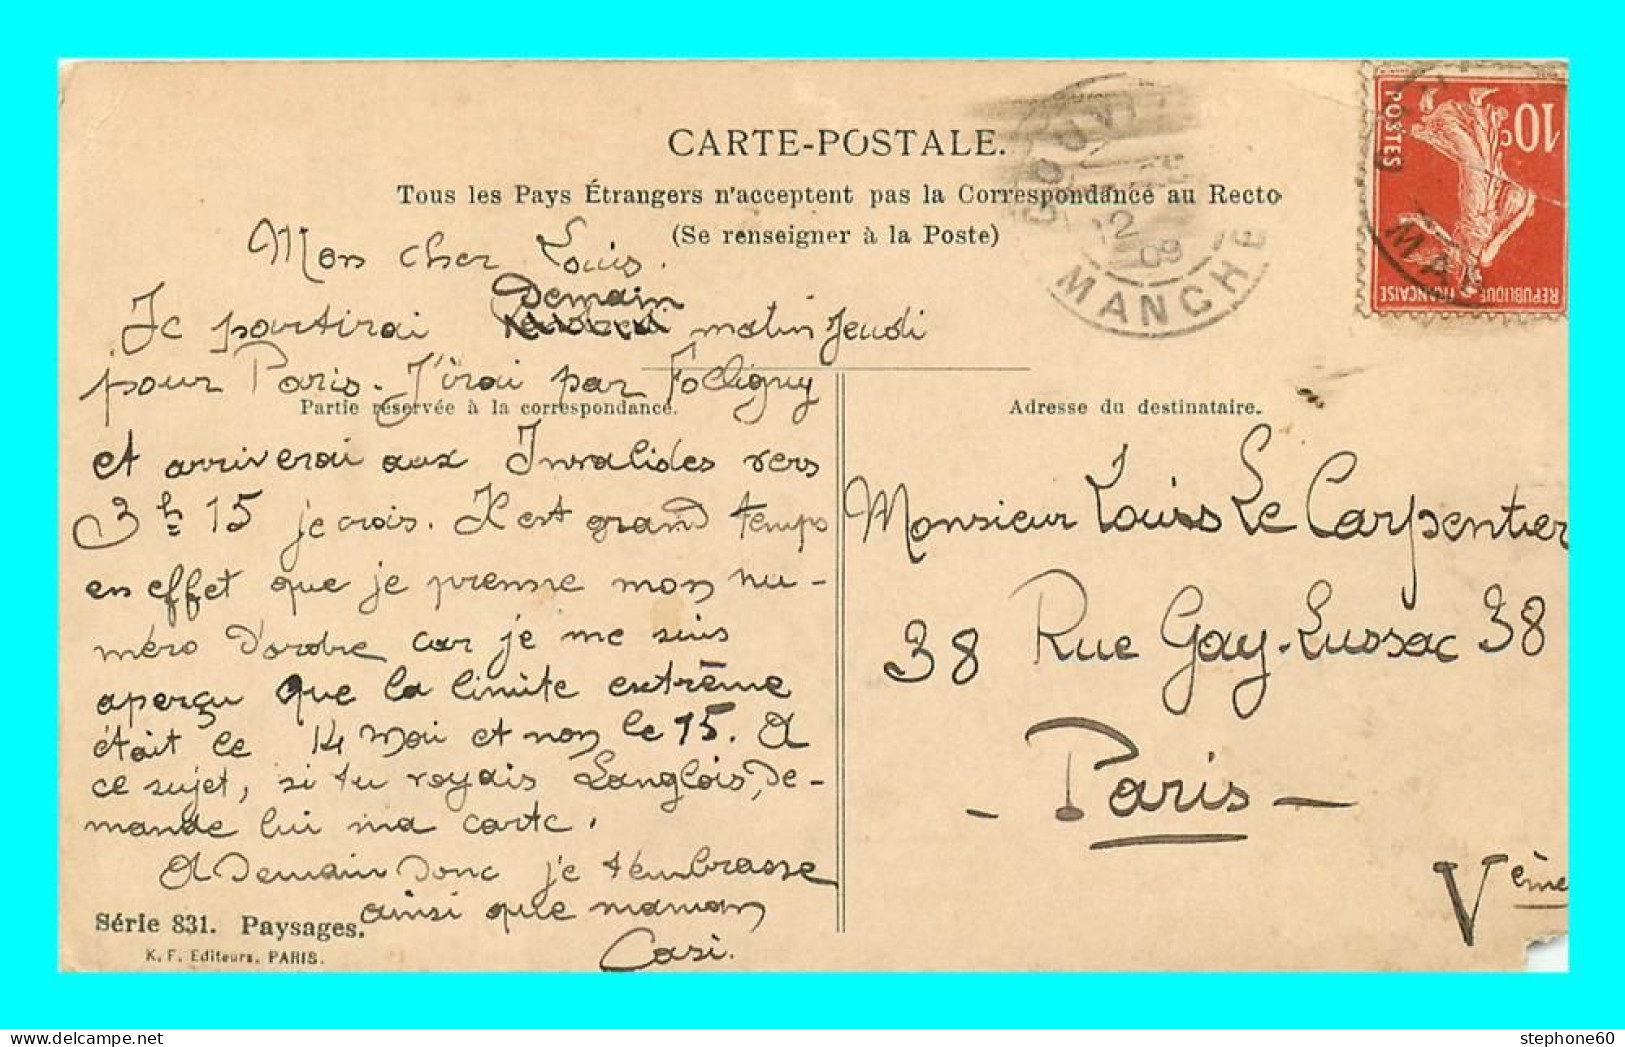 CARTE-POSTALE.
Tous les Pays Étrangers n'acceptent pas la Correspondance au Recto
(Se renseigner à la Poste)
MANCHE
09
10c
POSTES
REPUBLIQUE FRANÇAISE
Mon cher Louis.
Demain
Je partirai matin Jeudi
pour Paris. J'irai par Folligny
Partie réservée à la correspondance.
et arriverai aux Invalides vers
3 h 15 je crois. Il est grand temps
en effet que je prenne mon nu-
méro d'ordre car je me suis
aperçu que la limite extrême
était le 14 Mai et non le 15. A
ce sujet, si tu voyais Langlois, de-
mande lui ma carte.
A Demain donc je t'embrasse
ainsi que maman
Casi.
Série 831. Paysages.
K. F. Editeurs, PARIS.
Adresse du destinataire.
Monsieur Louis Le Carpentier
38 Rue Gay-Lussac 38
- Paris -
Vème
stephone60